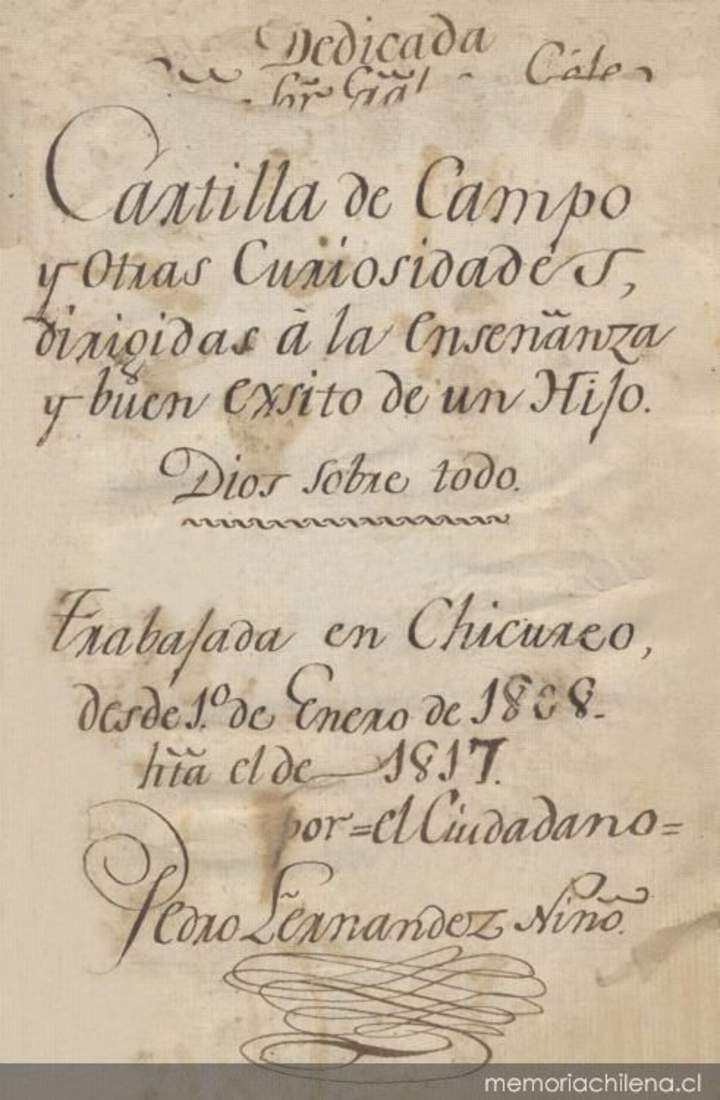 Dedicada
Cartilla de Campo
y Otras Curiosidades,
dirigidas â la enseñanza
y buen exsito de un Hijo.
Dios sobre todo.
Trabajada en Chicureo,
desde 1.º de Enero de 1808.
hta el de 1817.
por=el Ciudadano=
Pedro Fernandez Niño.
memoriachilena.cl